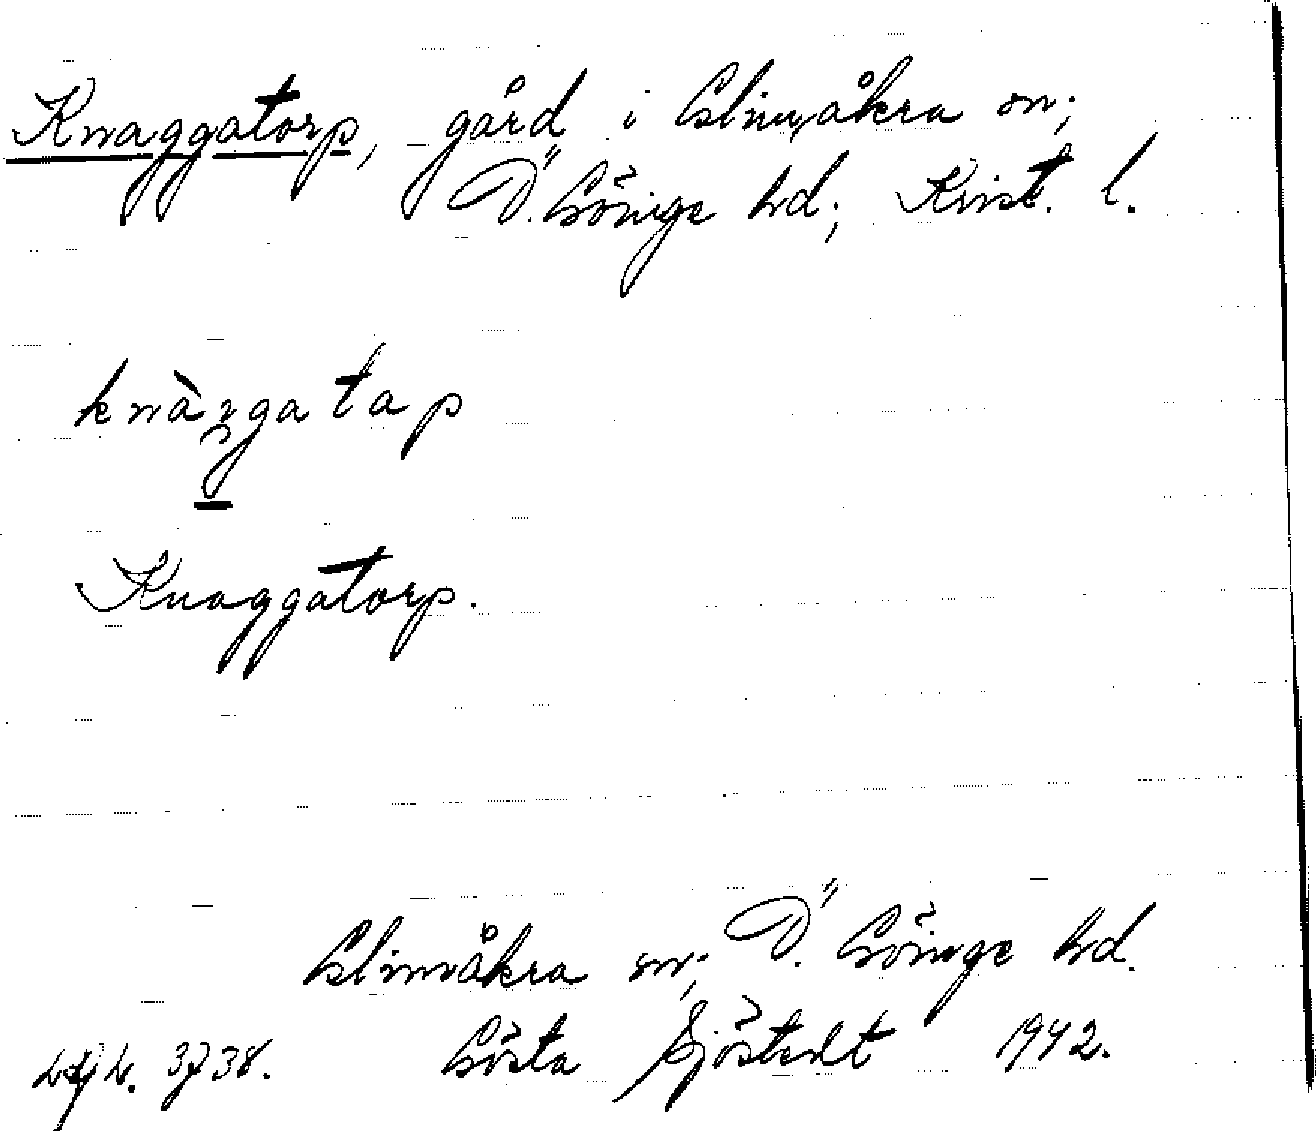 Knaggatorp, gård i Glimåkra sn;
Ö. Göinge hd; Krist. l.
knàggatap
Knaggatorp.
Glimåkra sn; Ö. Göinge hd.
Gösta Sjöstedt 1942.